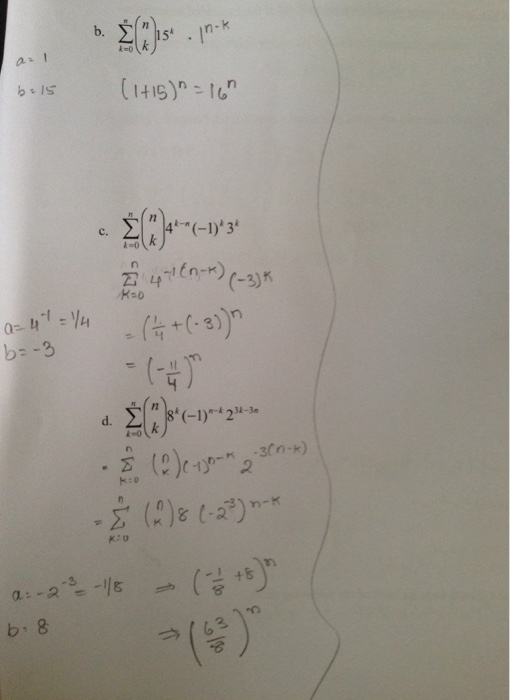 b. \sum_{k=0}^{n} \binom{n}{k} 15^k · 1^{n-k}
a = 1
b = 15 (1+15)^n = 16^n
c. \sum_{k=0}^{n} \binom{n}{k} 4^{k-n} (-1)^k 3^k
\sum_{k=0}^{n} 4^{-1(n-k)} (-3)^k
a = 4^{-1} = 1/4 = (\frac{1}{4} + (-3))^n
b = -3
= (-\frac{11}{4})^n
d. \sum_{k=0}^{n} \binom{n}{k} 8^k (-1)^{n-k} 2^{3k-3n}
= \sum_{k=0}^{n} \binom{n}{k} (-1)^{n-k} 2^{-3(n-k)}
= \sum_{k=0}^{n} \binom{n}{k} 8 (-2^{-3})^{n-k}
a = -2^{-3} = -1/8 ⇒ (\frac{-1}{8} + 8)^n
b = 8 ⇒ (\frac{63}{8})^n